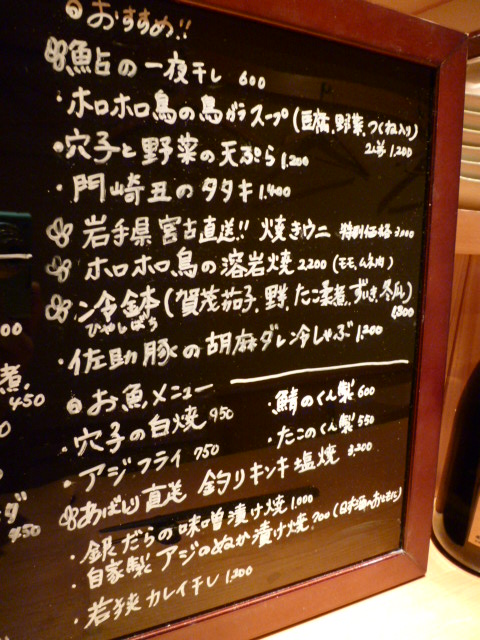 おすすめ!!
鮎の一夜干し 600
・ホロホロ鳥の鳥ガラスープ(豆腐、野菜、つくね入り)
2人前 1,200
・穴子と野菜の天ぷら 1,200
・門崎丑のタタキ 1,400
岩手県宮古直送!! 焼きウニ 特別価格
ホロホロ鳥の溶岩焼 2,200 (モモ、ムネ肉)
・冷鉢(賀茂茄子、野菜、たこ柔煮、ずいき、冬瓜)
ひやしばち
・佐助豚の胡麻ダレ冷しゃぶ 1,200
お魚メニュー
・穴子の白焼 950
・鯖のくん製 600
・アジフライ 750
・たこのくん製 550
あばしり直送 釣りキンキ塩焼 3,200
・銀だらの味噌漬け焼 1,000
・自家製アジのぬか漬け焼 700 (日本酒のおともに)
・若狭カレイ干し 1,200
煮 450
450